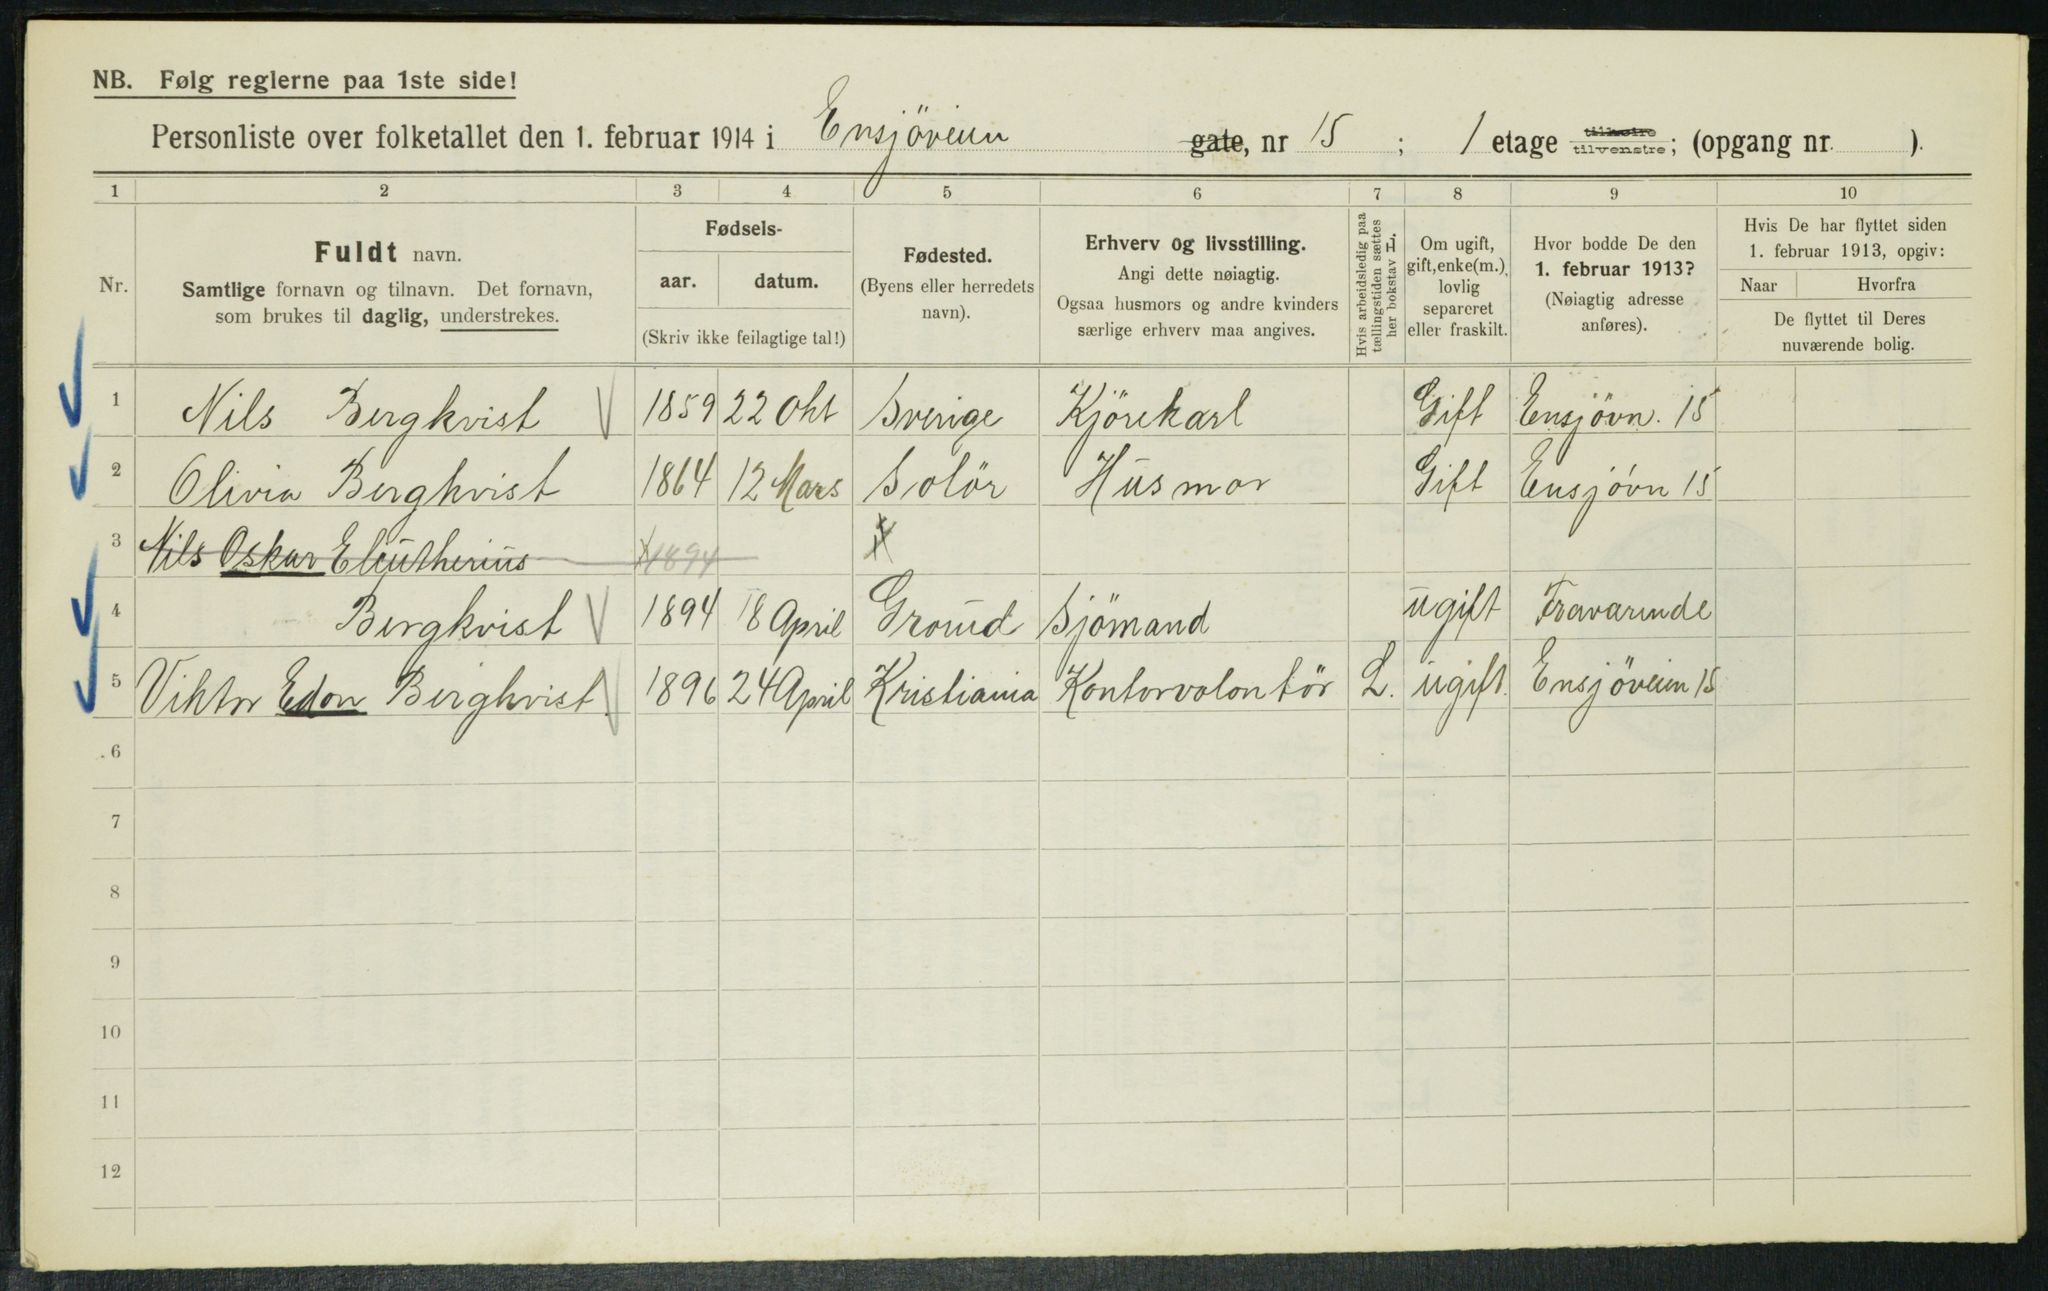 NB. Følg reglerne paa 1ste side!
Personliste over folketallet den 1. februar 1914 i Ensjöveien gate, nr 15 ; 1 etage tilhøire tilvenstre; (opgang nr. ).
1 2 3 4 5 6 7 8 9 10
Nr.
Fuldt navn.
Samtlige fornavn og tilnavn. Det fornavn,
som brukes til daglig, understrekes.
Fødsels-
aar. datum.
(Skriv ikke feilagtige tal!)
Fødested.
(Byens eller herredets
navn).
Erhverv og livsstilling.
Angi dette nøiagtig.
Ogsaa husmors og andre kvinders
særlige erhverv maa angives.
Hvis arbeidsledig paa
tællingstiden sættes
her bokstav L.
Om ugift,
gift, enke(m.),
lovlig
separeret
eller fraskilt.
Hvor bodde De den
1. februar 1913?
(Nøiagtig adresse
anføres).
Hvis De har flyttet siden
1. februar 1913, opgiv:
Naar Hvorfra
De flyttet til Deres
nuværende bolig.
1 Nils Bergkvist 1859 22 Okt Sverige Kjörekarl Gift Ensjövn. 15
2 Olivia Bergkvist 1864 12 Mars Solör Husmor Gift Ensjövn 15
3 Nils Oskar Eleutherius 1894
4 Bergkvist 1894 18 April Grorud Sjömand ugift Fraværende
5 Viktor Edon Bergkvist. 1896 24 April Kristiania Kontorvolontör L. ugift. Ensjöveien 15
6
7
8
9
10
11
12